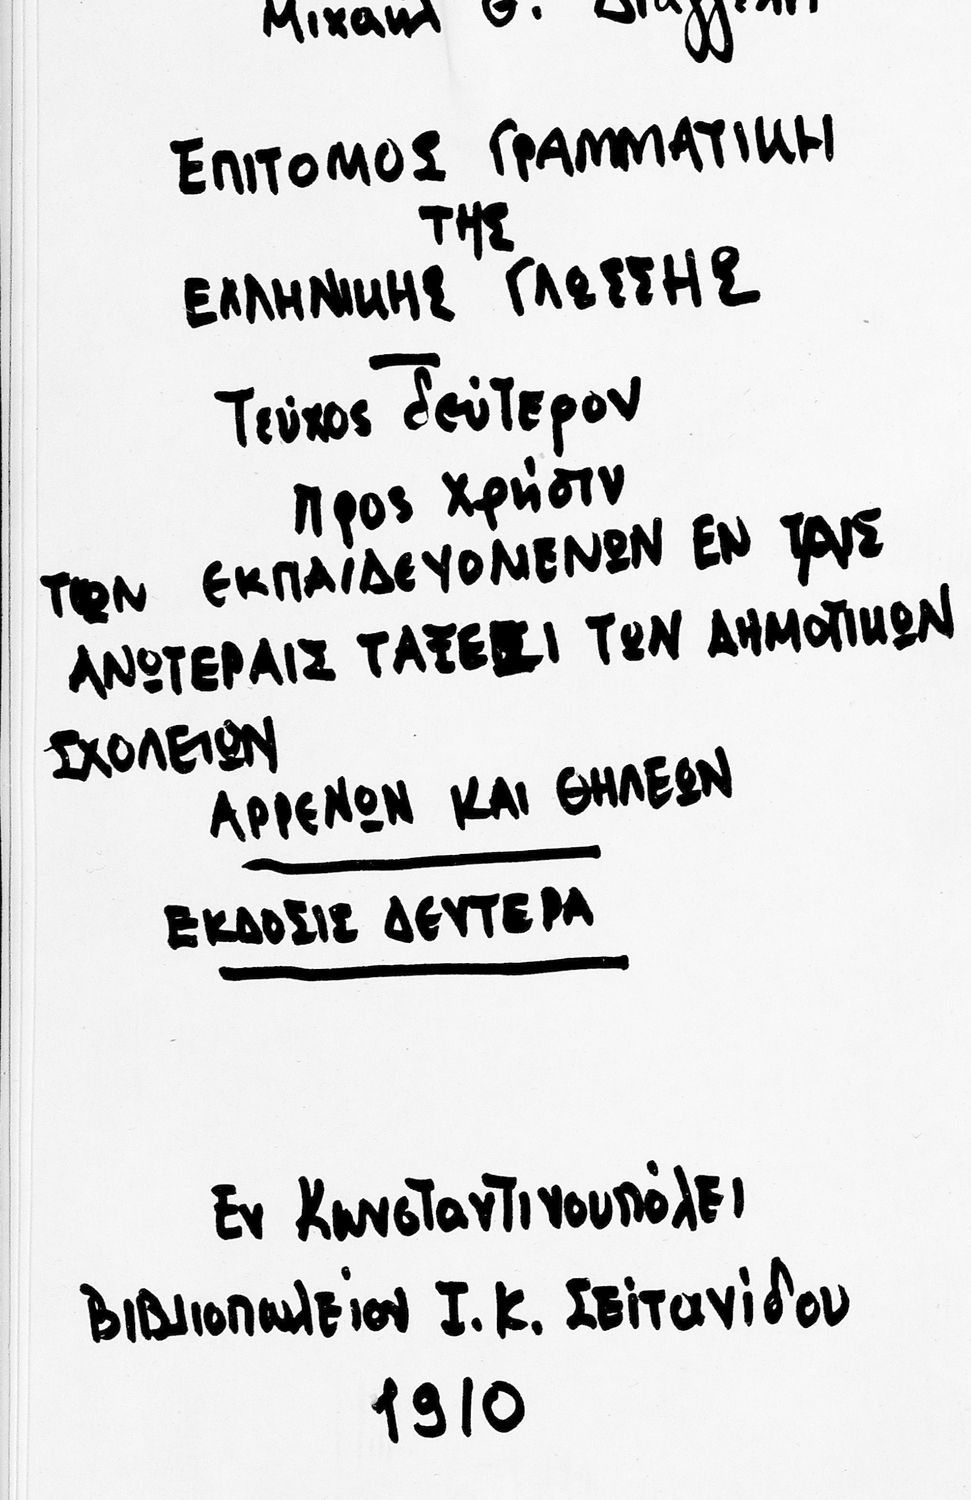 Μιχαηλ Θ.
ΕΠΙΤΟΜΟΣ ΓΡΑΜΜΑΤΙΚΗ
ΤΗΣ
ΕΛΛΗΝΙΚΗΣ ΓΛΩΣΣΗΣ
Τεύχος δεύτερον
προς χρήσιν
ΤΩΝ ΕΚΠΑΙΔΕΥΟΜΕΝΩΝ ΕΝ ΤΑΙΣ
ΑΝΩΤΕΡΑΙΣ ΤΑΞΕΣΙ ΤΩΝ ΔΗΜΟΤΙΚΩΝ
ΣΧΟΛΕΙΩΝ
ΑΡΡΕΝΩΝ ΚΑΙ ΘΗΛΕΩΝ
ΕΚΔΟΣΙΣ ΔΕΥΤΕΡΑ
Εν Κωνσταντινουπόλει
Βιβλιοπωλείον Ι. Κ. Σεϊτανίδου
1910